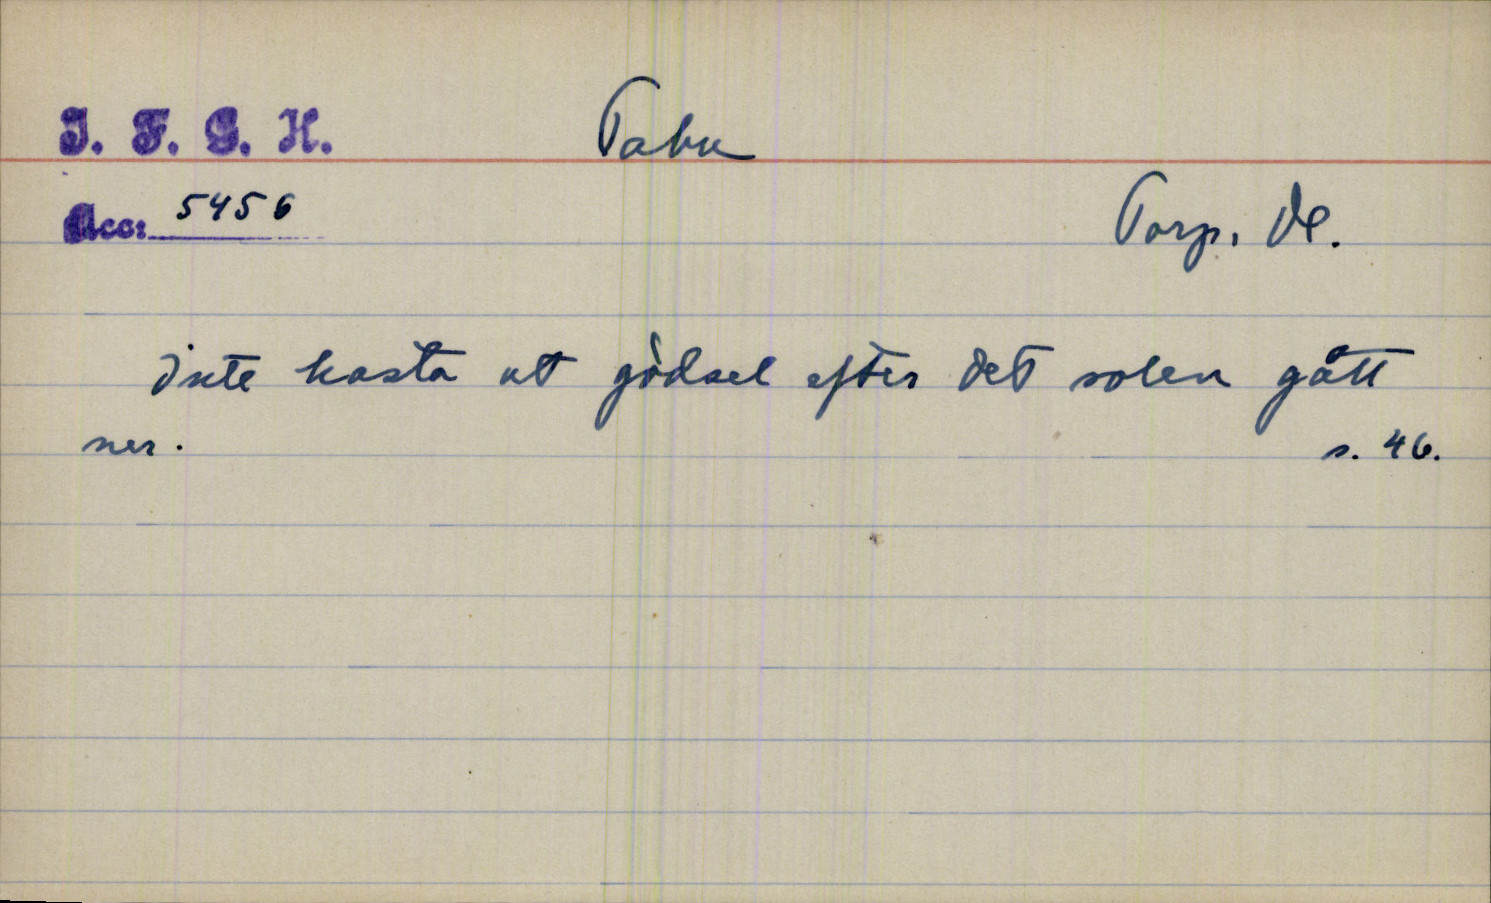 I. F. G. H. Tabu
Acc: 5456
Torp. Dl.
Inte kasta ut gödsel efter det solen gått
ner. s. 46.